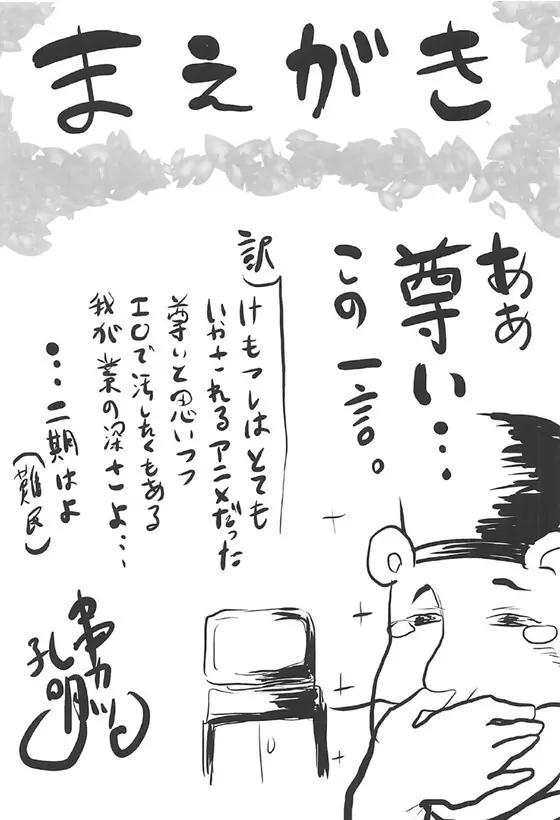 まえがき
ああ
尊い…
この一言。
訳)
けもフレはとても
いやされるアニメだった
尊いと思いつつ
エロで汚したくもある
我が業の深さよ…
…二期はよ
(難民)
串カツ
孔明